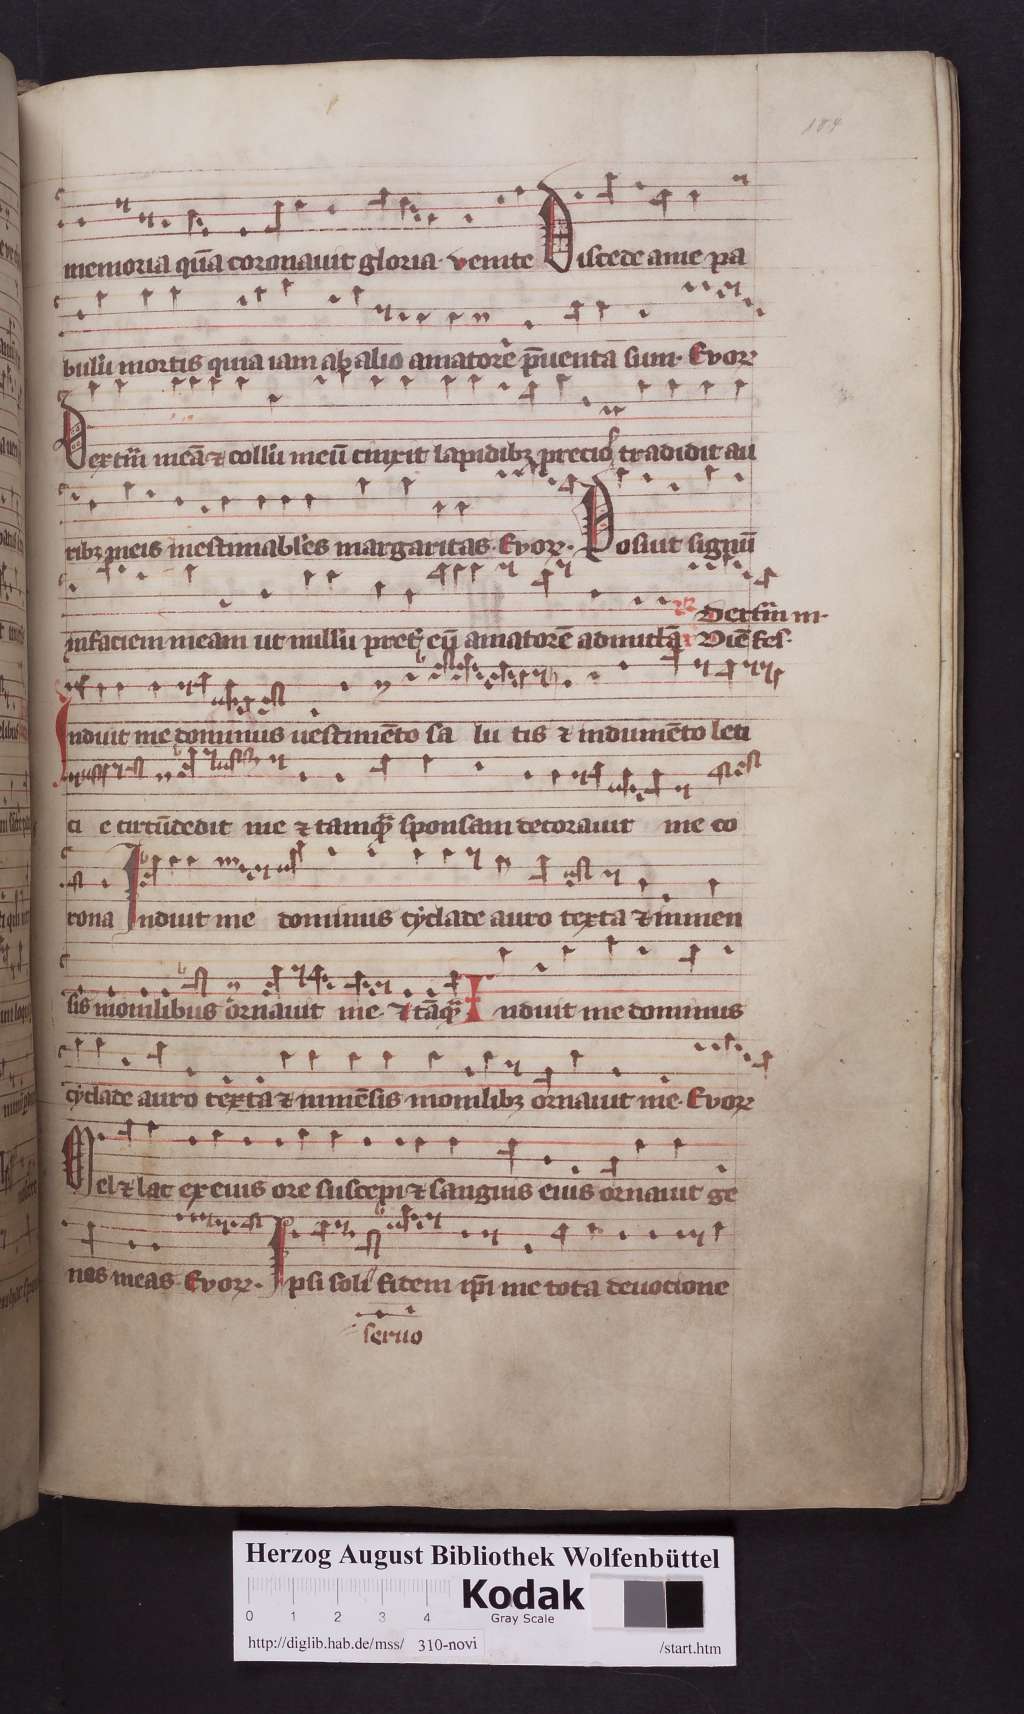 184
memoria quā coronauit gloria. venite Discede a me pa
bulū mortis quia iam ab alio amatorē p̄uenta sum. Evovȩ
Dextrā meā ⁊ collū meū cinxit lapidibꝫ preciosꝭ tradidit au
ribꝫ meis inestimabiles margaritas. Evovȩ. Posuit signū
℟ Dextrā m.
in faciem meam ut nullū pret eū amatorē admittā Diē fes.
Induit me dominus uestimēto sa lu tis ⁊ indumēto leti
ci e circūdedit me ⁊ tamq̄ sponsam decorauit me co
rona Induit me dominus cyclade auro texta ⁊ inmen
sis monilibus ornauit me. ⁊ tāq̄ Induit me dominus
cyclade auro texta ⁊ inmēsis monilibꝫ ornauit me. Evovȩ
Mel ⁊ lac ex eius ore suscepi ⁊ sanguis eius ornauit ge
nas meas. Evovȩ. Ipsi soli fidem ip̄i me tota deuocione
seruo
Herzog August Bibliothek Wolfenbüttel
0 1 2 3 4
Kodak
Gray Scale
http://diglib.hab.de/mss/ 310-novi /start.htm